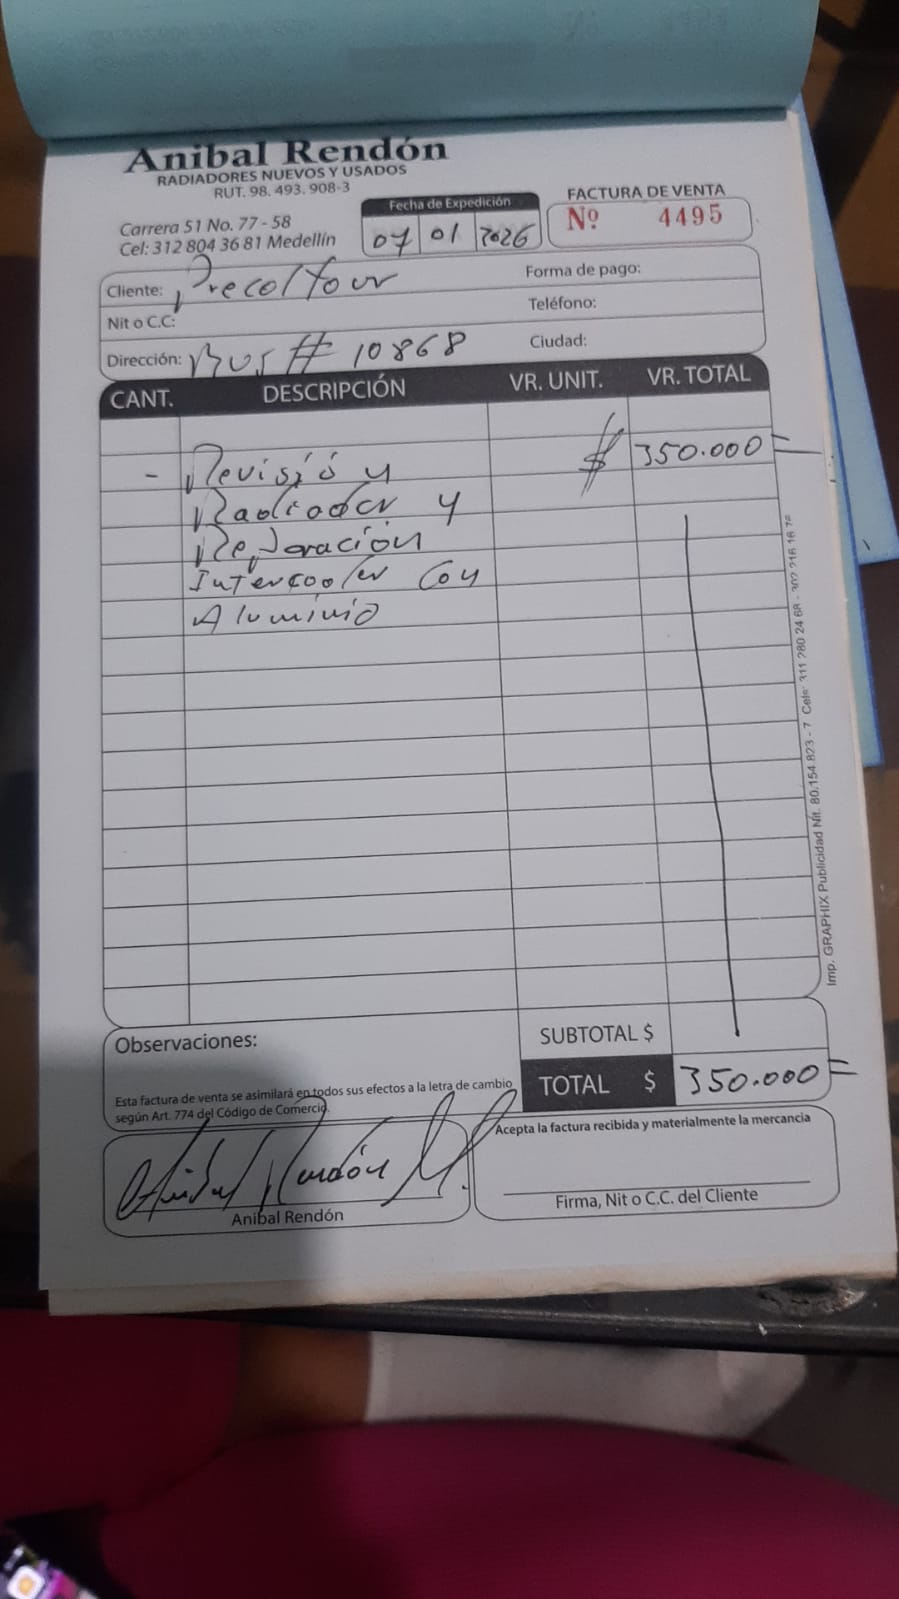 Anibal Rendón
RADIADORES NUEVOS Y USADOS
RUT. 98. 493. 908-3
Carrera 51 No. 77 - 58
Cel: 312 804 36 81 Medellín
Fecha de Expedición
07 01 2026
FACTURA DE VENTA
Nº 4495
Cliente: Precoltour
Forma de pago:
Nit o C.C:
Teléfono:
Dirección: Bus # 10868
Ciudad:
CANT. DESCRIPCIÓN VR. UNIT. VR. TOTAL
- Revisió y $ 350.000=
Radiador y
Reparación
Intercooler Con
Aluminio
Observaciones:
SUBTOTAL $
Esta factura de venta se asimilará en todos sus efectos a la letra de cambio
según Art. 774 del Código de Comercio.
TOTAL $ 350.000=
Anibal Rendón M.
Anibal Rendón
Acepta la factura recibida y materialmente la mercancia
Firma, Nit o C.C. del Cliente
Imp. GRAPHIX Publicidad Nit. 80.154.823 - 7 Cels: 311 280 24 68 - 302 216 16 78